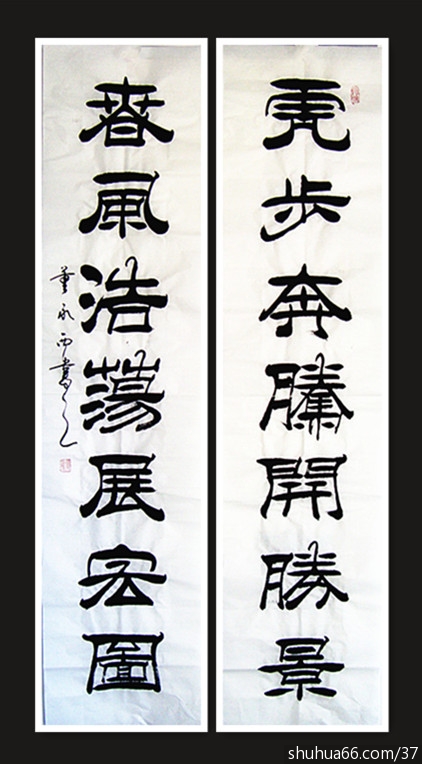 虎步奔騰開勝景
春風浩蕩展宏圖
董永西書
shuhua66.com/37